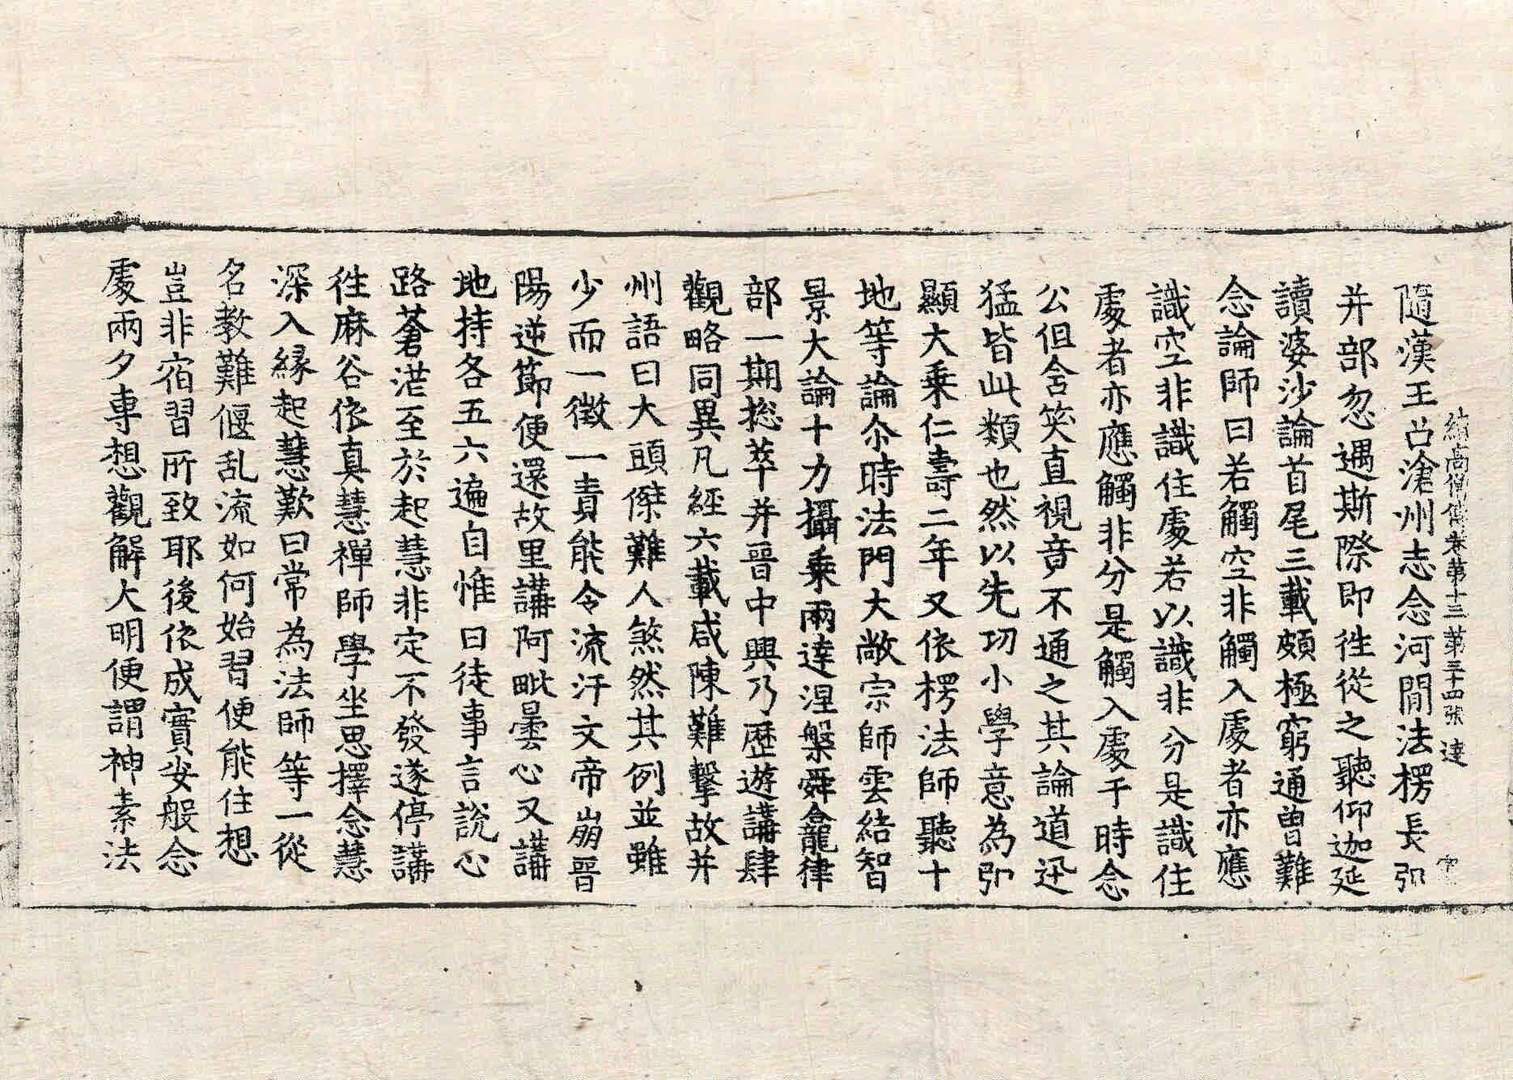 續高僧傳卷第十三 第三十四張 達
隨漢王召滄州志念河間法楞長弘
并部忽遇斯際即往從之聽仰迦延
讀婆沙論首尾三載頗極窮通曾難
念論師曰若觸空非觸入處者亦應
識空非識住處若以識非分是識住
處者亦應觸非分是觸入處于時念
公但含笑直視竟不通之其論道迅
猛皆此類也然以先切小學意為弘
顯大乗仁壽二年又依楞法師聽十
地等論尒時法門大敞宗師雲結智
景大論十力攝乗兩達涅槃舜龕律
部一期揔萃并晉中興乃歷遊講肆
觀略同異凡經六載咸陳難擊故并
州語曰大頭傑難人煞然其例並雖
少而一徵一責能令流汗文帝崩晉
陽逆節便還故里講阿毗曇心又講
地持各五六遍自惟曰徒事言說心
路蒼茫至於起慧非定不發遂停講
往麻谷依真慧禪師學坐思擇念慧
深入緣起慧歎曰常為法師等一從
名教難偃乱流如何始習便能住想
豈非宿習所致耶後依成實安般念
處兩夕專想觀解大明便謂神素法